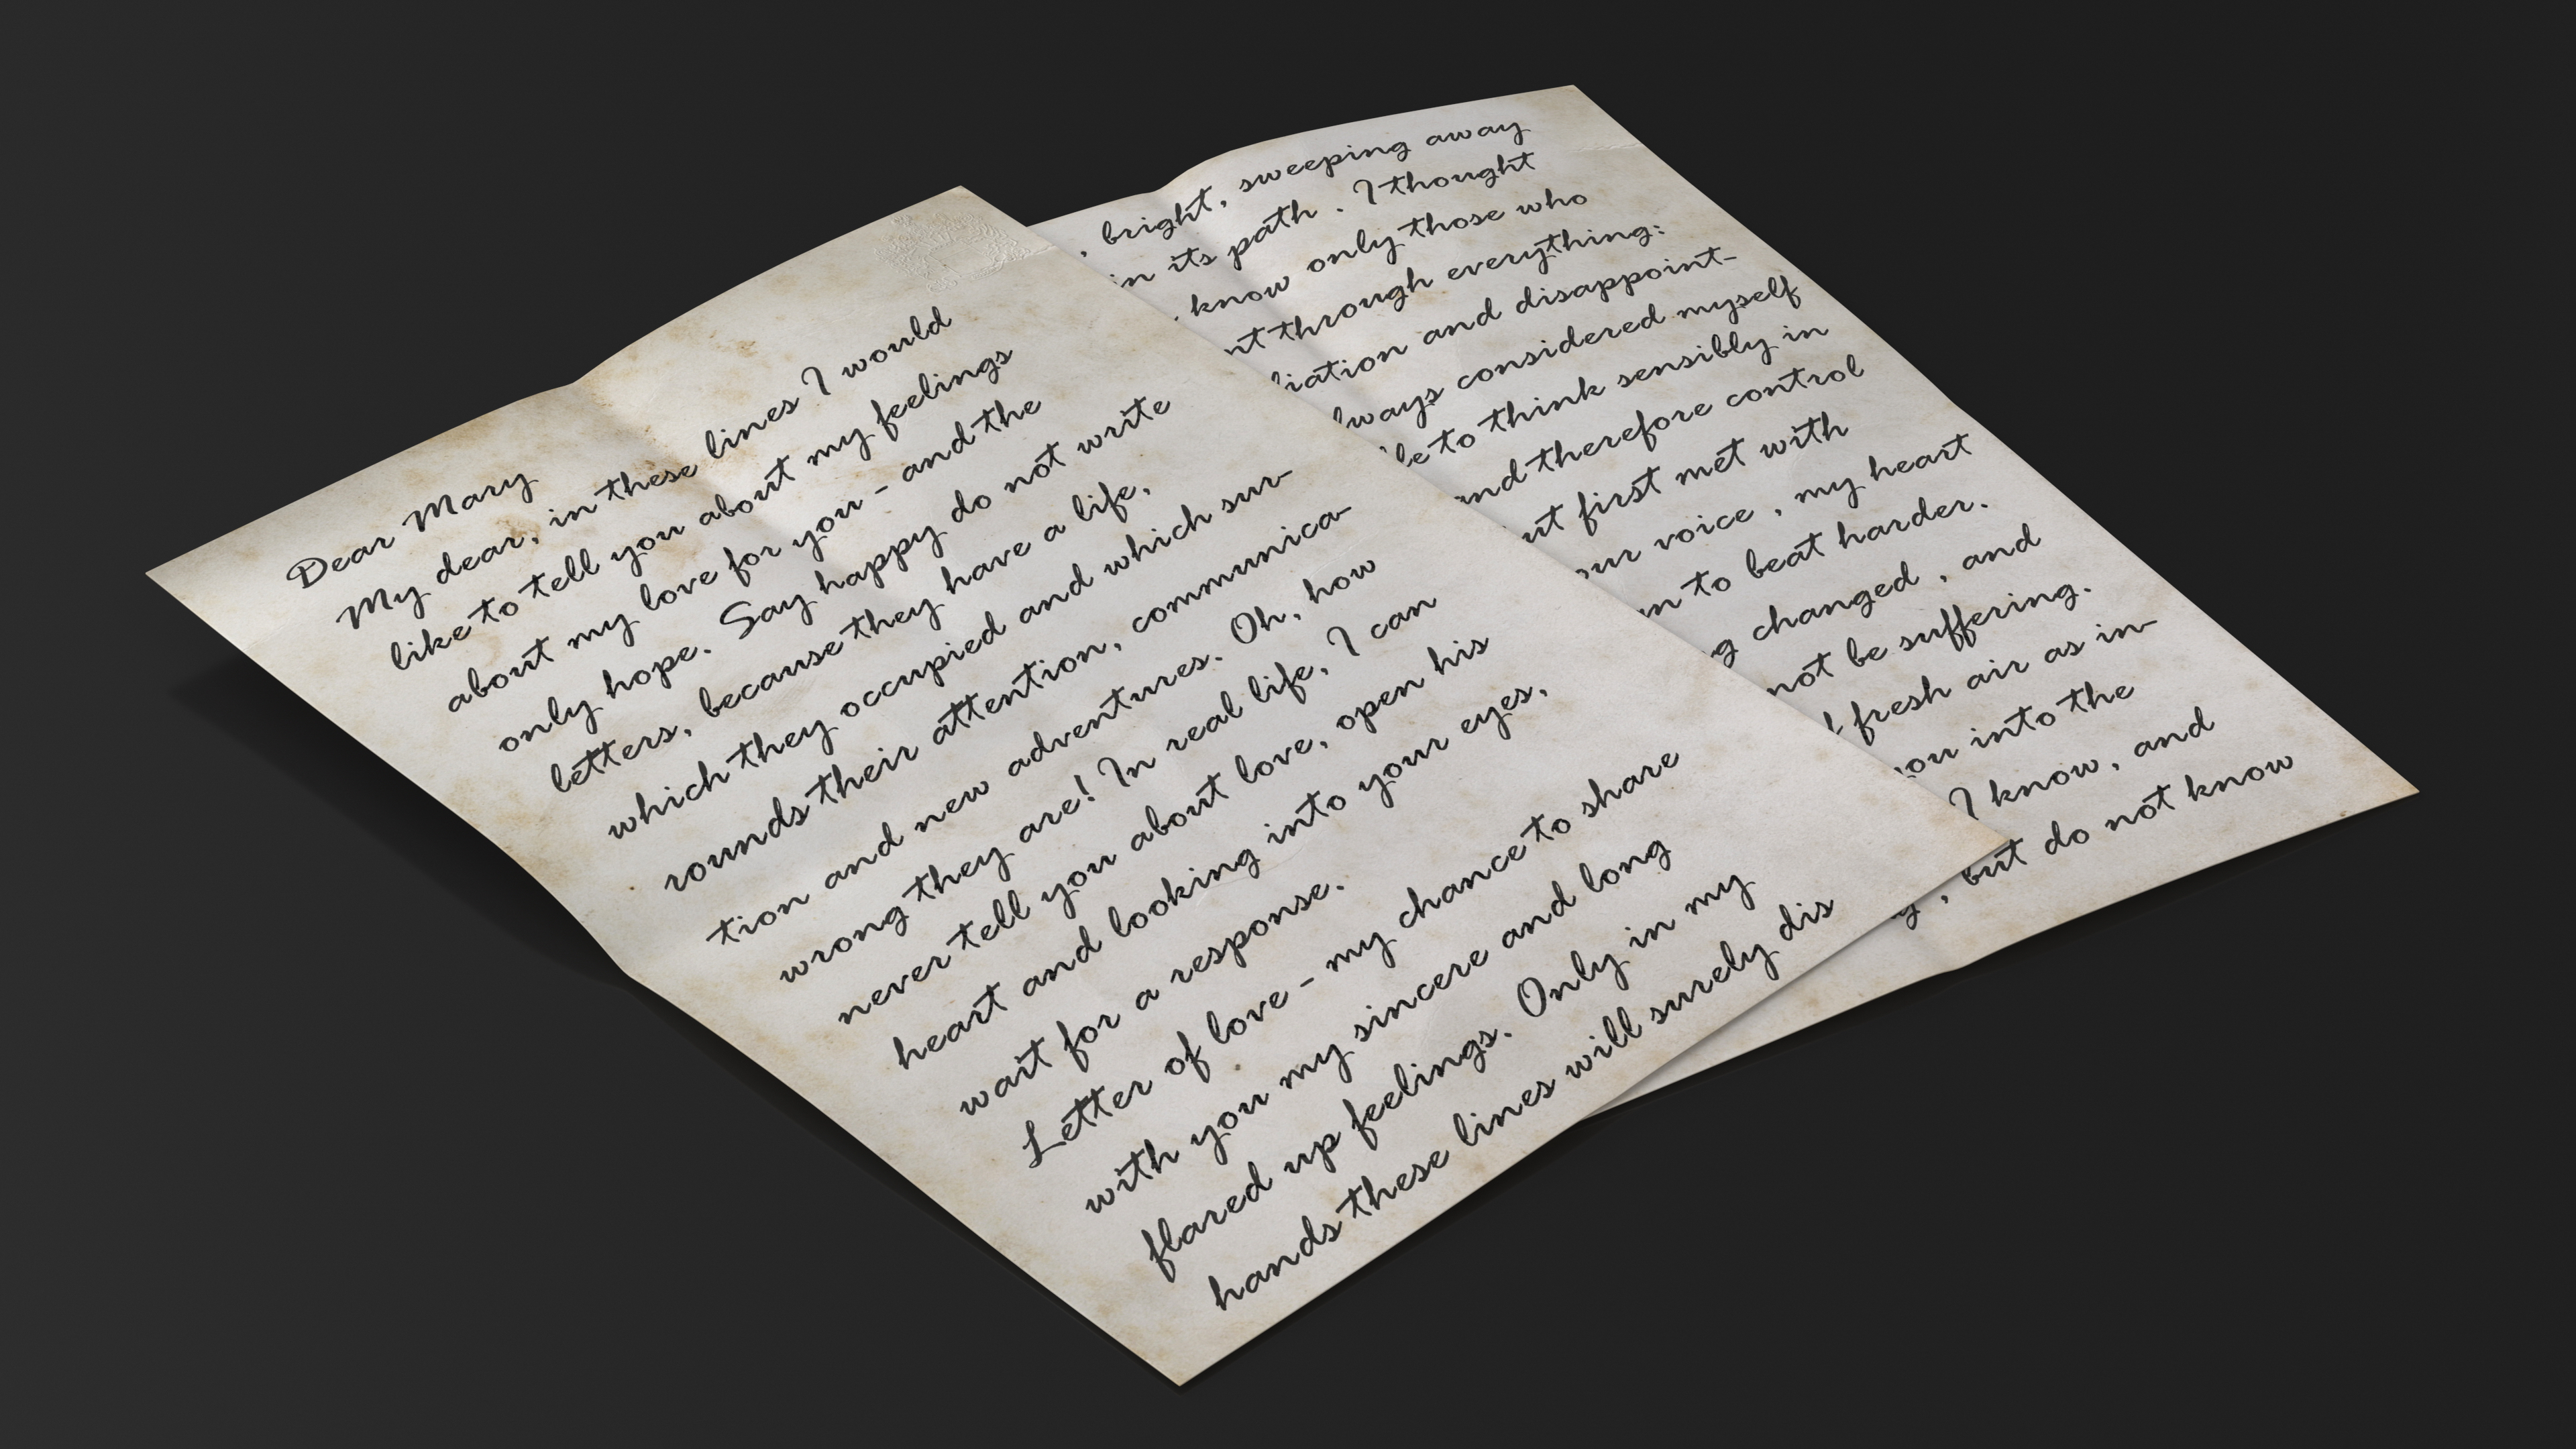 Dear Mary
My dear, in these lines I would
like to tell you about my feelings
about my love for you - and the
only hope. Say happy do not write
letters, because they have a life,
which they occupied and which sur-
rounds their attention, communica-
tion and new adventures. Oh, how
wrong they are! In real life, I can
never tell you about love, open his
heart and looking into your eyes,
wait for a response.
Letter of love - my chance to share
with you my sincere and long
flared up feelings. Only in my
hands these lines will surely dis
, bright, sweeping away
in its path . I thought
know only those who
through everything:
and disappoint-
considered myself
to think sensibly in
therefore control
first met with
voice , my heart
to beat harder.
changed , and
not be suffering.
fresh air as in-
into the
I know, and
, but do not know